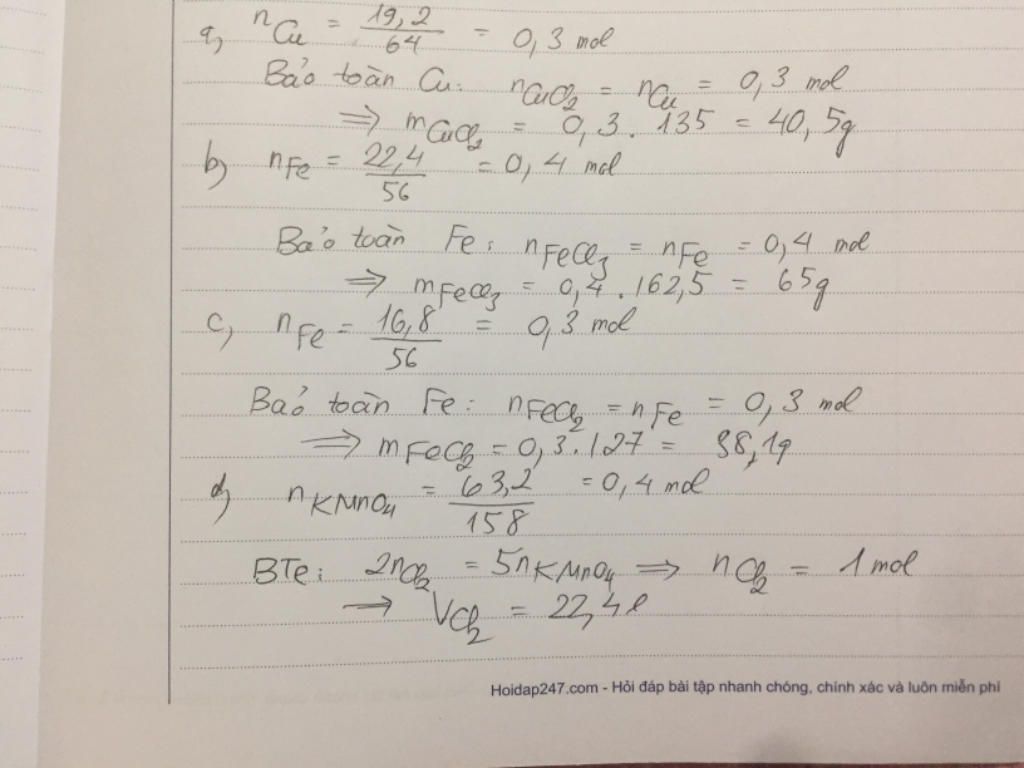 a, nCu = 19,2/64 = 0,3 mol
Bảo toàn Cu: nCuCl2 = nCu = 0,3 mol
=> mCuCl2 = 0,3 . 135 = 40,5g
b) nFe = 22,4/56 = 0,4 mol
Bảo toàn Fe: nFeCl3 = nFe = 0,4 mol
=> mFeCl3 = 0,4 . 162,5 = 65g
c, nFe = 16,8/56 = 0,3 mol
Bảo toàn Fe: nFeCl2 = nFe = 0,3 mol
=> mFeCl2 = 0,3 . 127 = 38,1g
d) nKMnO4 = 63,2/158 = 0,4 mol
BTe: 2nCl2 = 5nKMnO4 => nCl2 = 1 mol
-> VCl2 = 22,4 l
Hoidap247.com - Hỏi đáp bài tập nhanh chóng, chính xác và luôn miễn phí